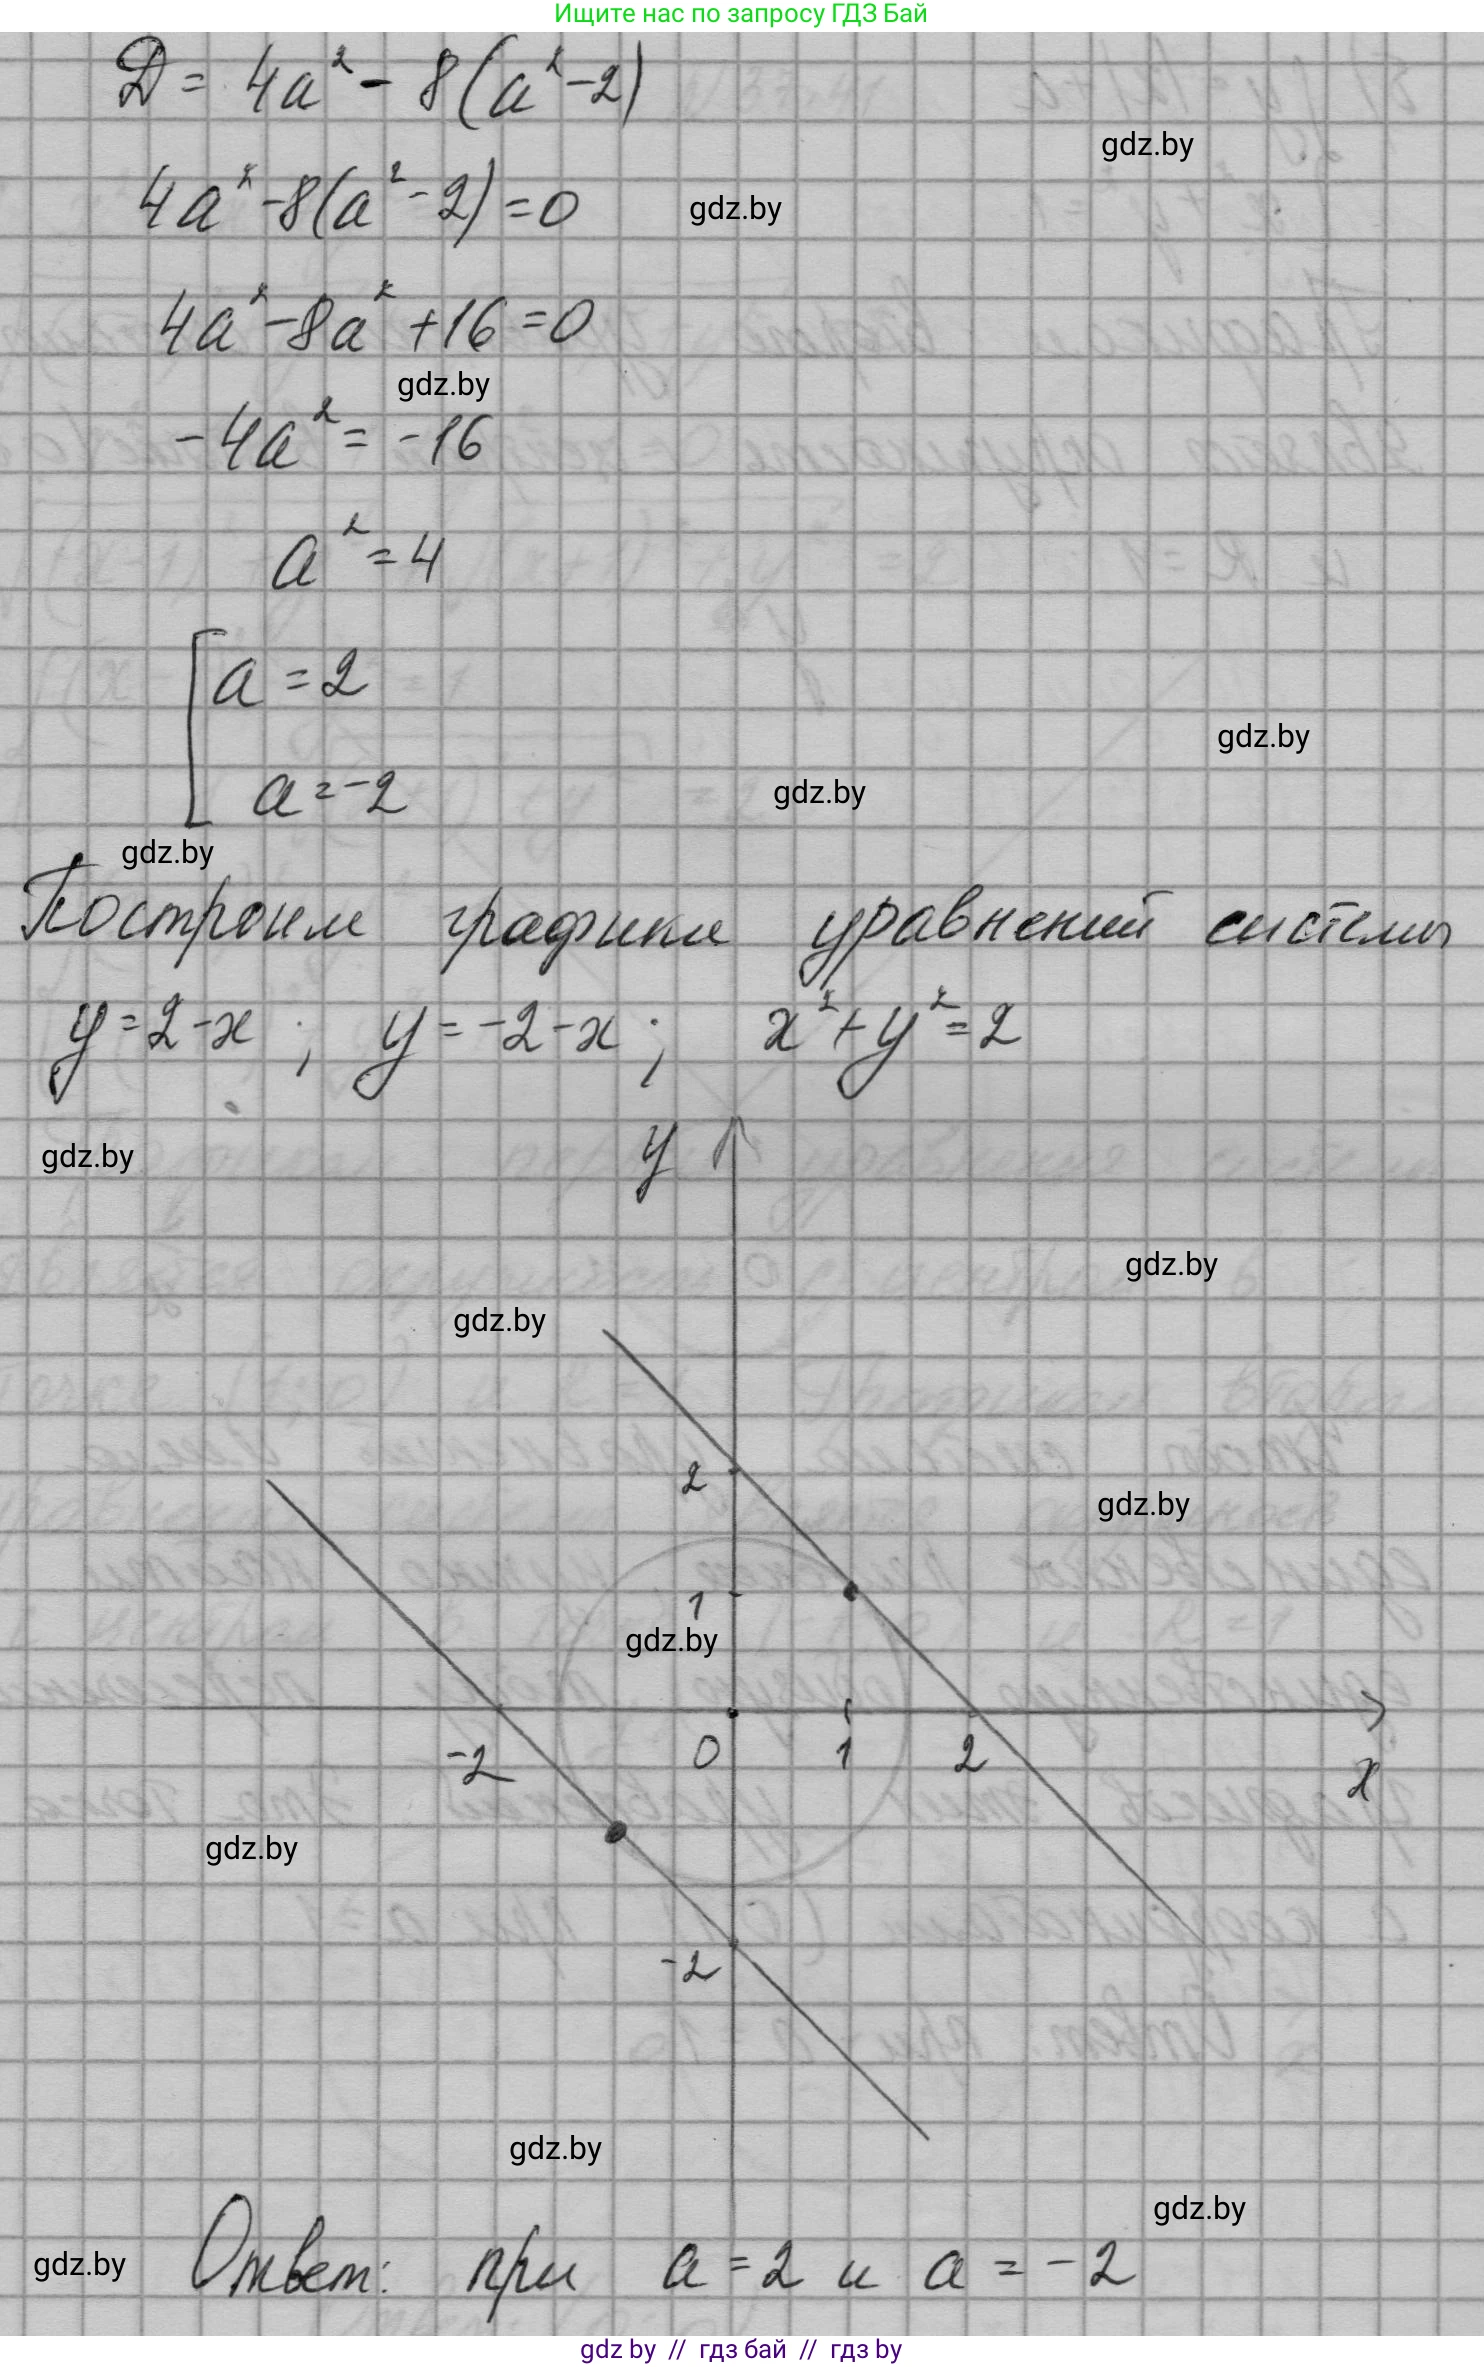 Ищите нас по запросу ГДЗ Бай
D = 4a² - 8(a² - 2)
gdz.by
4a² - 8(a² - 2) = 0
gdz.by
4a² - 8a² + 16 = 0
gdz.by
-4a² = -16
a² = 4
[a = 2
gdz.by
a = -2
gdz.by
gdz.by
Построим графики уравнений системы
y = 2 - x ; y = -2 - x ; x² + y² = 2
y
gdz.by
gdz.by
gdz.by
2
gdz.by
1
gdz.by
-2 0 1 2 x
gdz.by
-2
gdz.by
gdz.by
Ответ: при a = 2 и a = -2
gdz.by
gdz by // гдз бай // гдз by